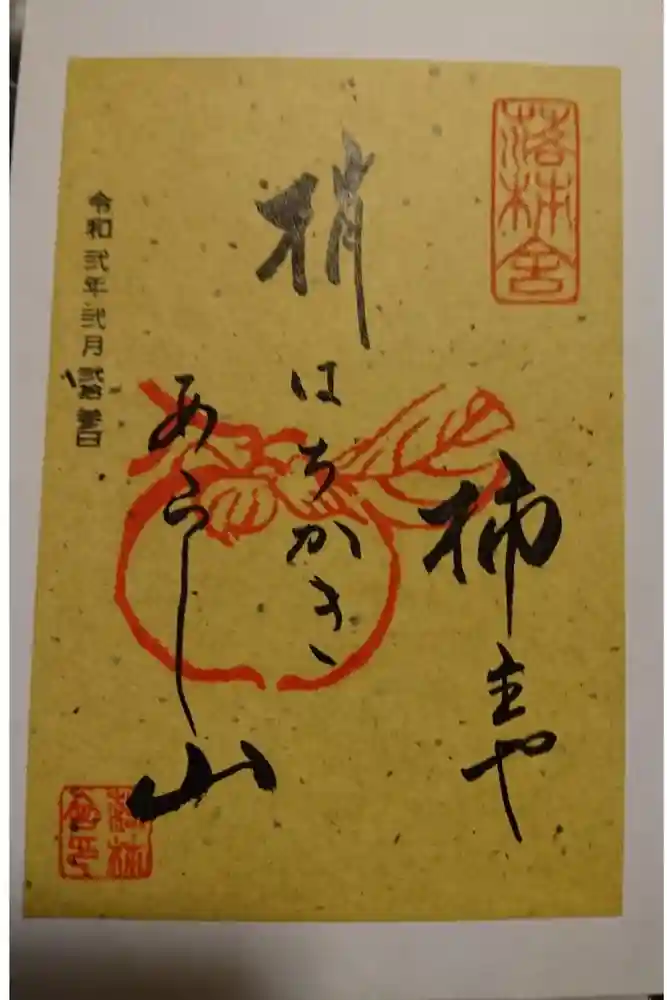 落柿舎
柿主や
梢はちかき
あらし山
令和弐年弐月弐拾参日